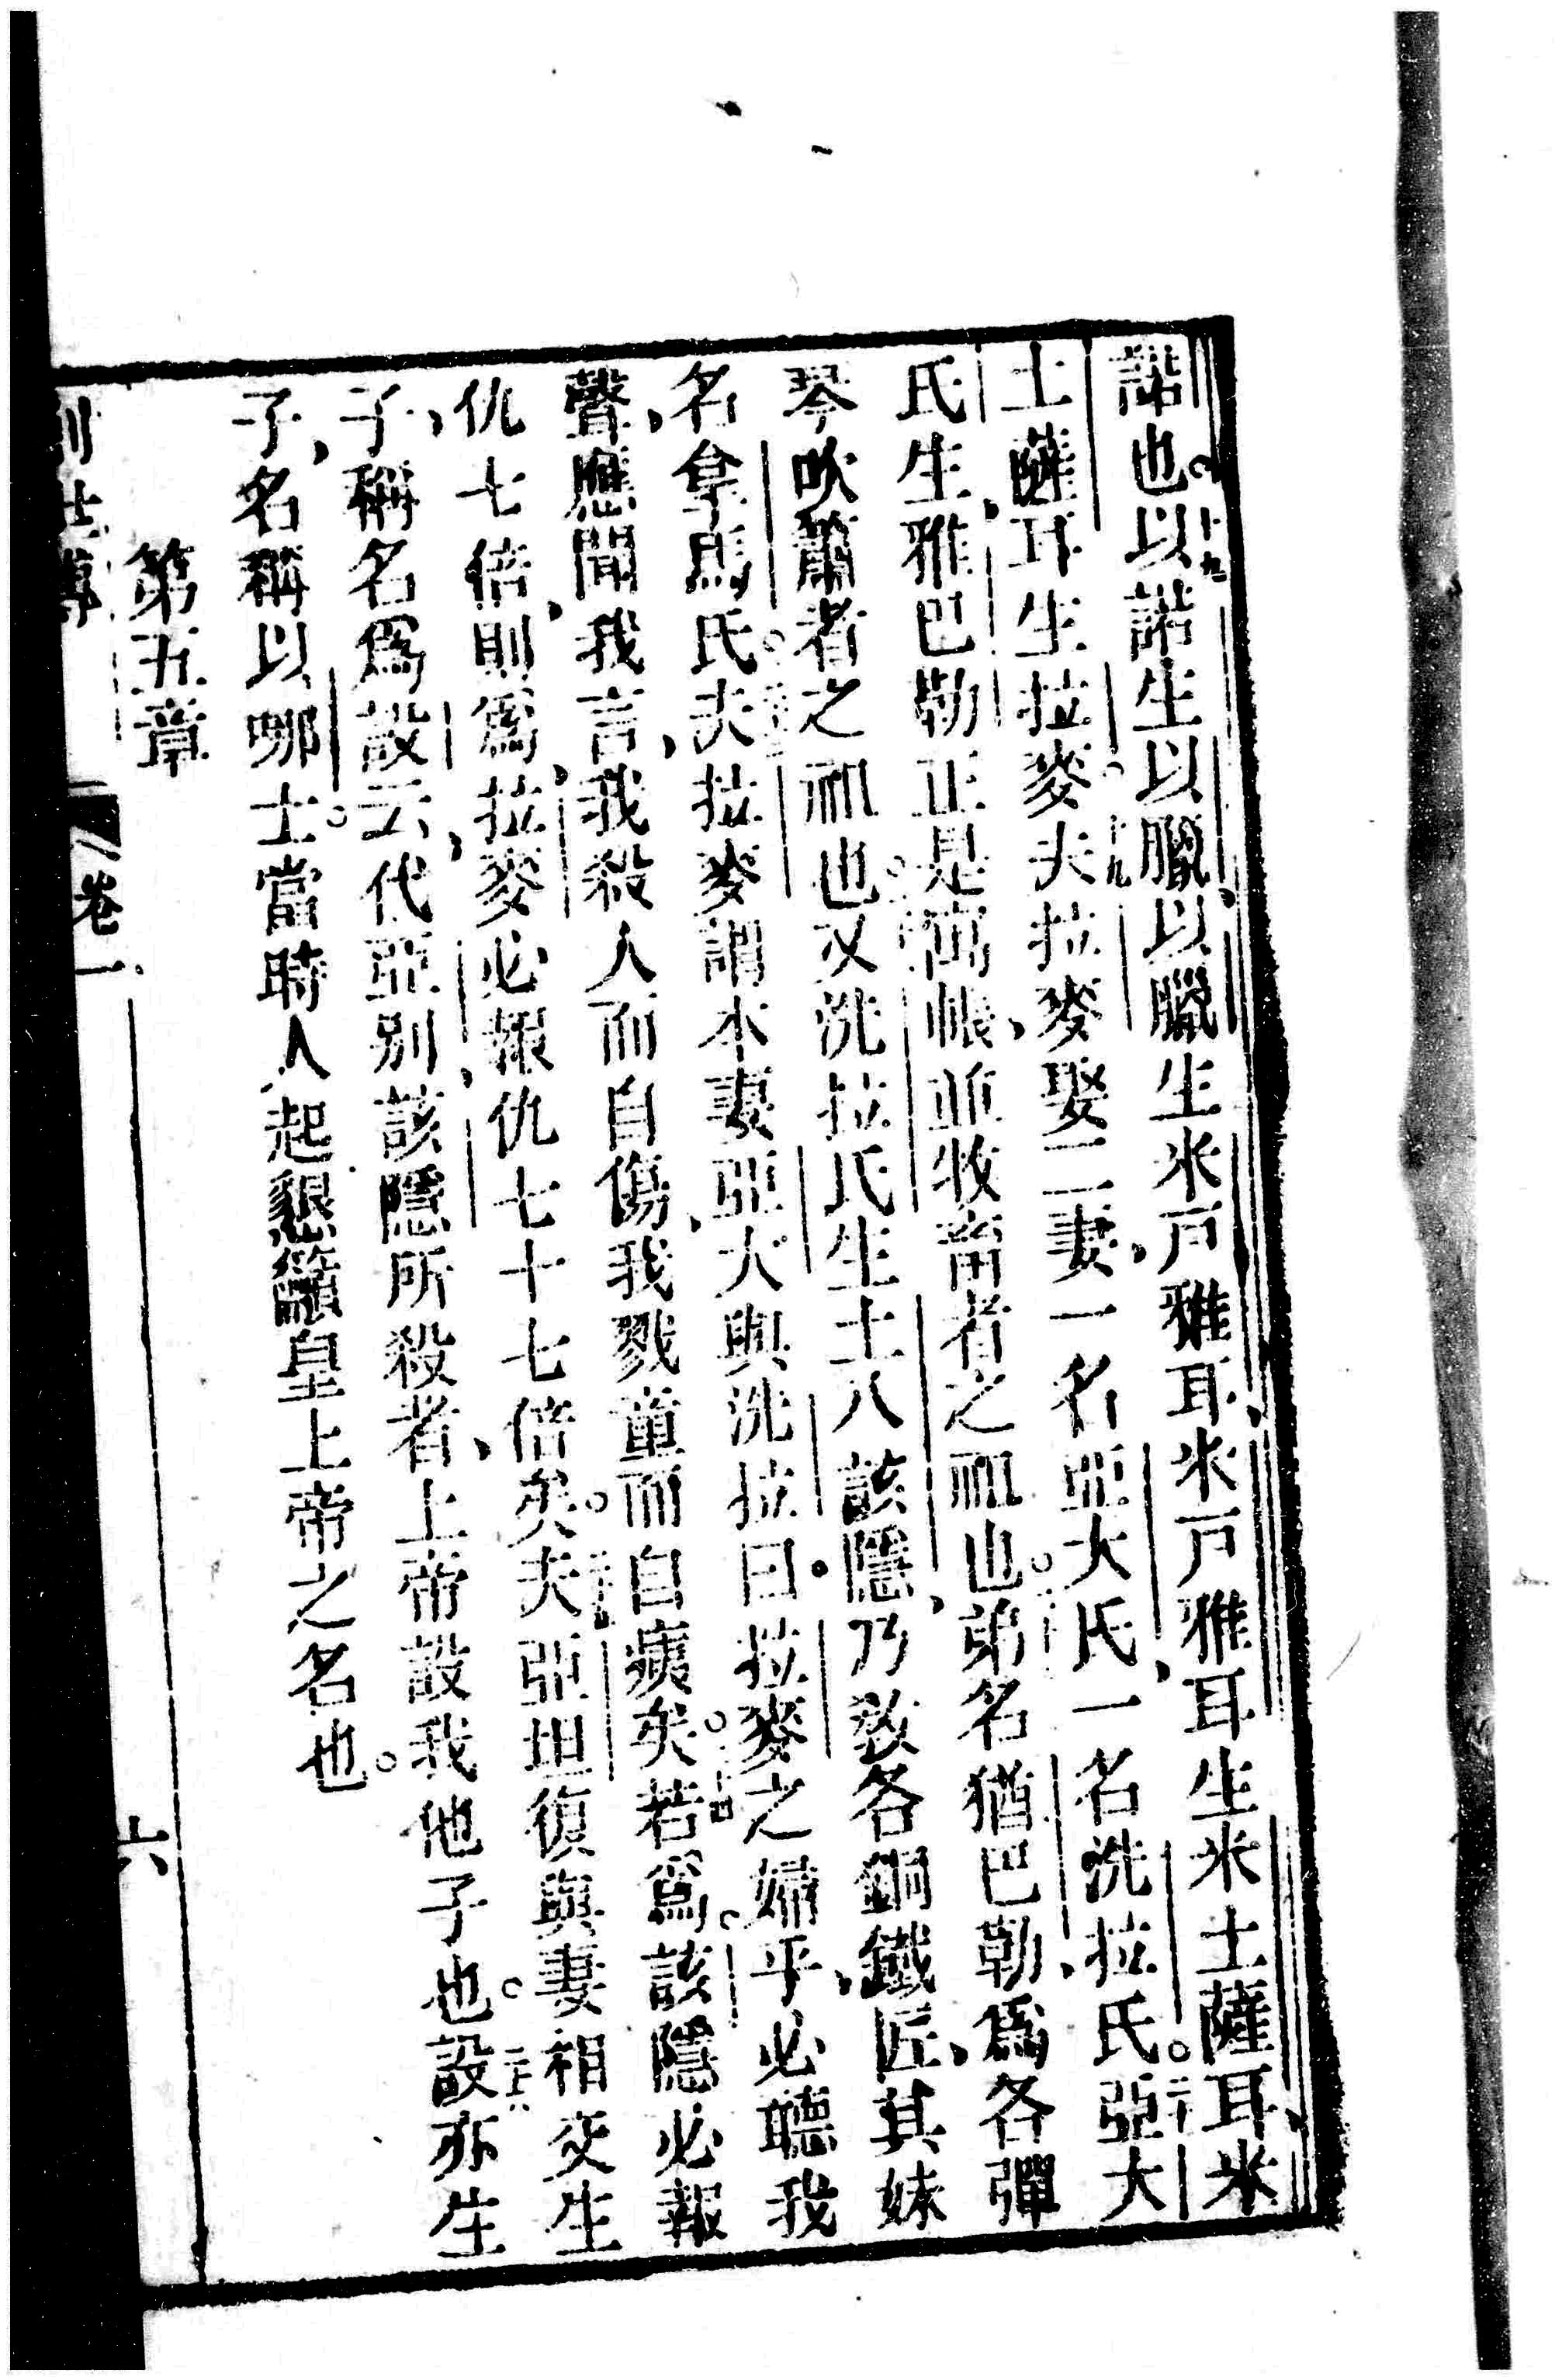 諾也。以諾生以臘、以臘生米戸雅耳、米戸雅耳生米土薩耳、米
土薩耳生拉麥。十九夫拉麥娶二妻、一名亞大氏、一名洗拉氏。二十亞大
氏生、雅巴勒正是寓帳、並牧畜者之祖也。弟名猶巴勒、爲各彈
琴吹簫者之祖也。又洗拉氏生土八該隱、乃敎各銅鐵匠、其妹
名拿馬氏。夫拉麥謂本妻亞大與洗拉曰。拉麥之婦乎、必聽我
聲、應聞我言、我殺人而自傷、我戮童而自痍矣。若爲該隱必報
仇七倍、則爲、拉麥必報仇七十七倍矣。夫亞坦復與妻相交生
子、稱名爲設云、代亞別、該隱所殺者、上帝設我他子也。二十六設亦生
子、名稱以哪士。當時人起懇籲皇上帝之名也。
第五章
卷一
六